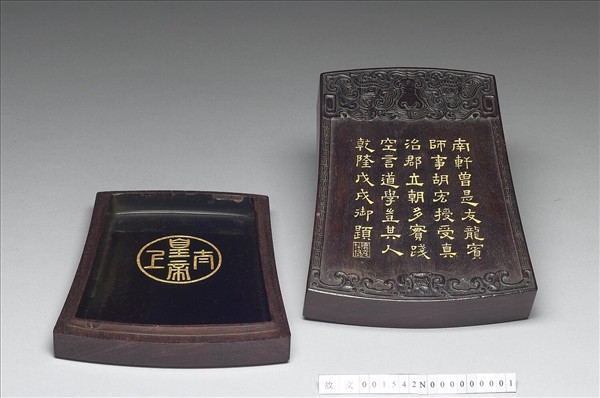 南軒曾是友龍賓
師事胡宏授受真
治郡立朝多實踐
空言道學豈其人
乾隆戊戌御題
太上皇帝
故文001542N000000001